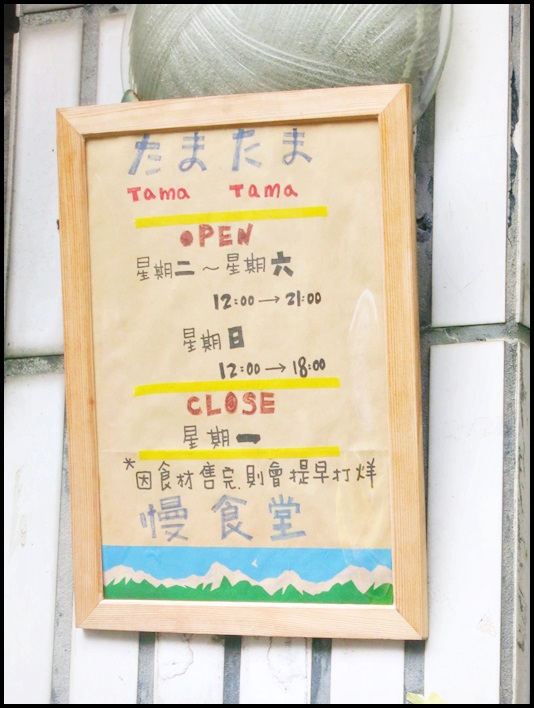 たまたま
Tama Tama
OPEN
星期二～星期六
12:00→21:00
星期日
12:00→18:00
CLOSE
星期一
*因食材售完,則會提早打烊
慢食堂